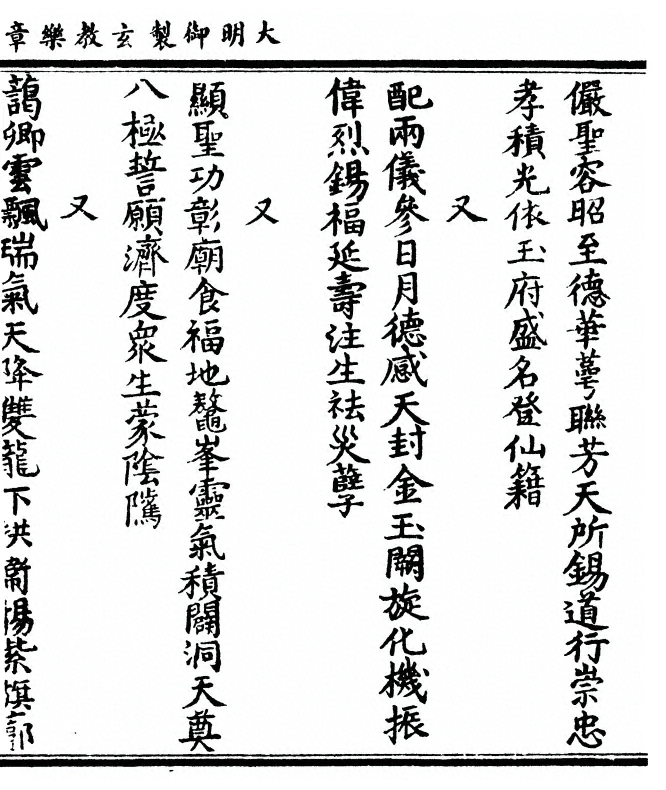 大明御製玄教樂章
儼聖容昭至德華萼聯芳天所錫道行崇忠
孝積光依玉府盛名登仙籍
又
配兩儀參日月德感天封金玉闕旋化機振
偉烈錫福延壽注生祛災孽
又
顯聖功彰廟食福地鼇峯靈氣積闢洞天奠
八極誓願濟度衆生蒙陰隲
又
藹卿雲飄瑞氣天降雙龍下洪 揚紫旗